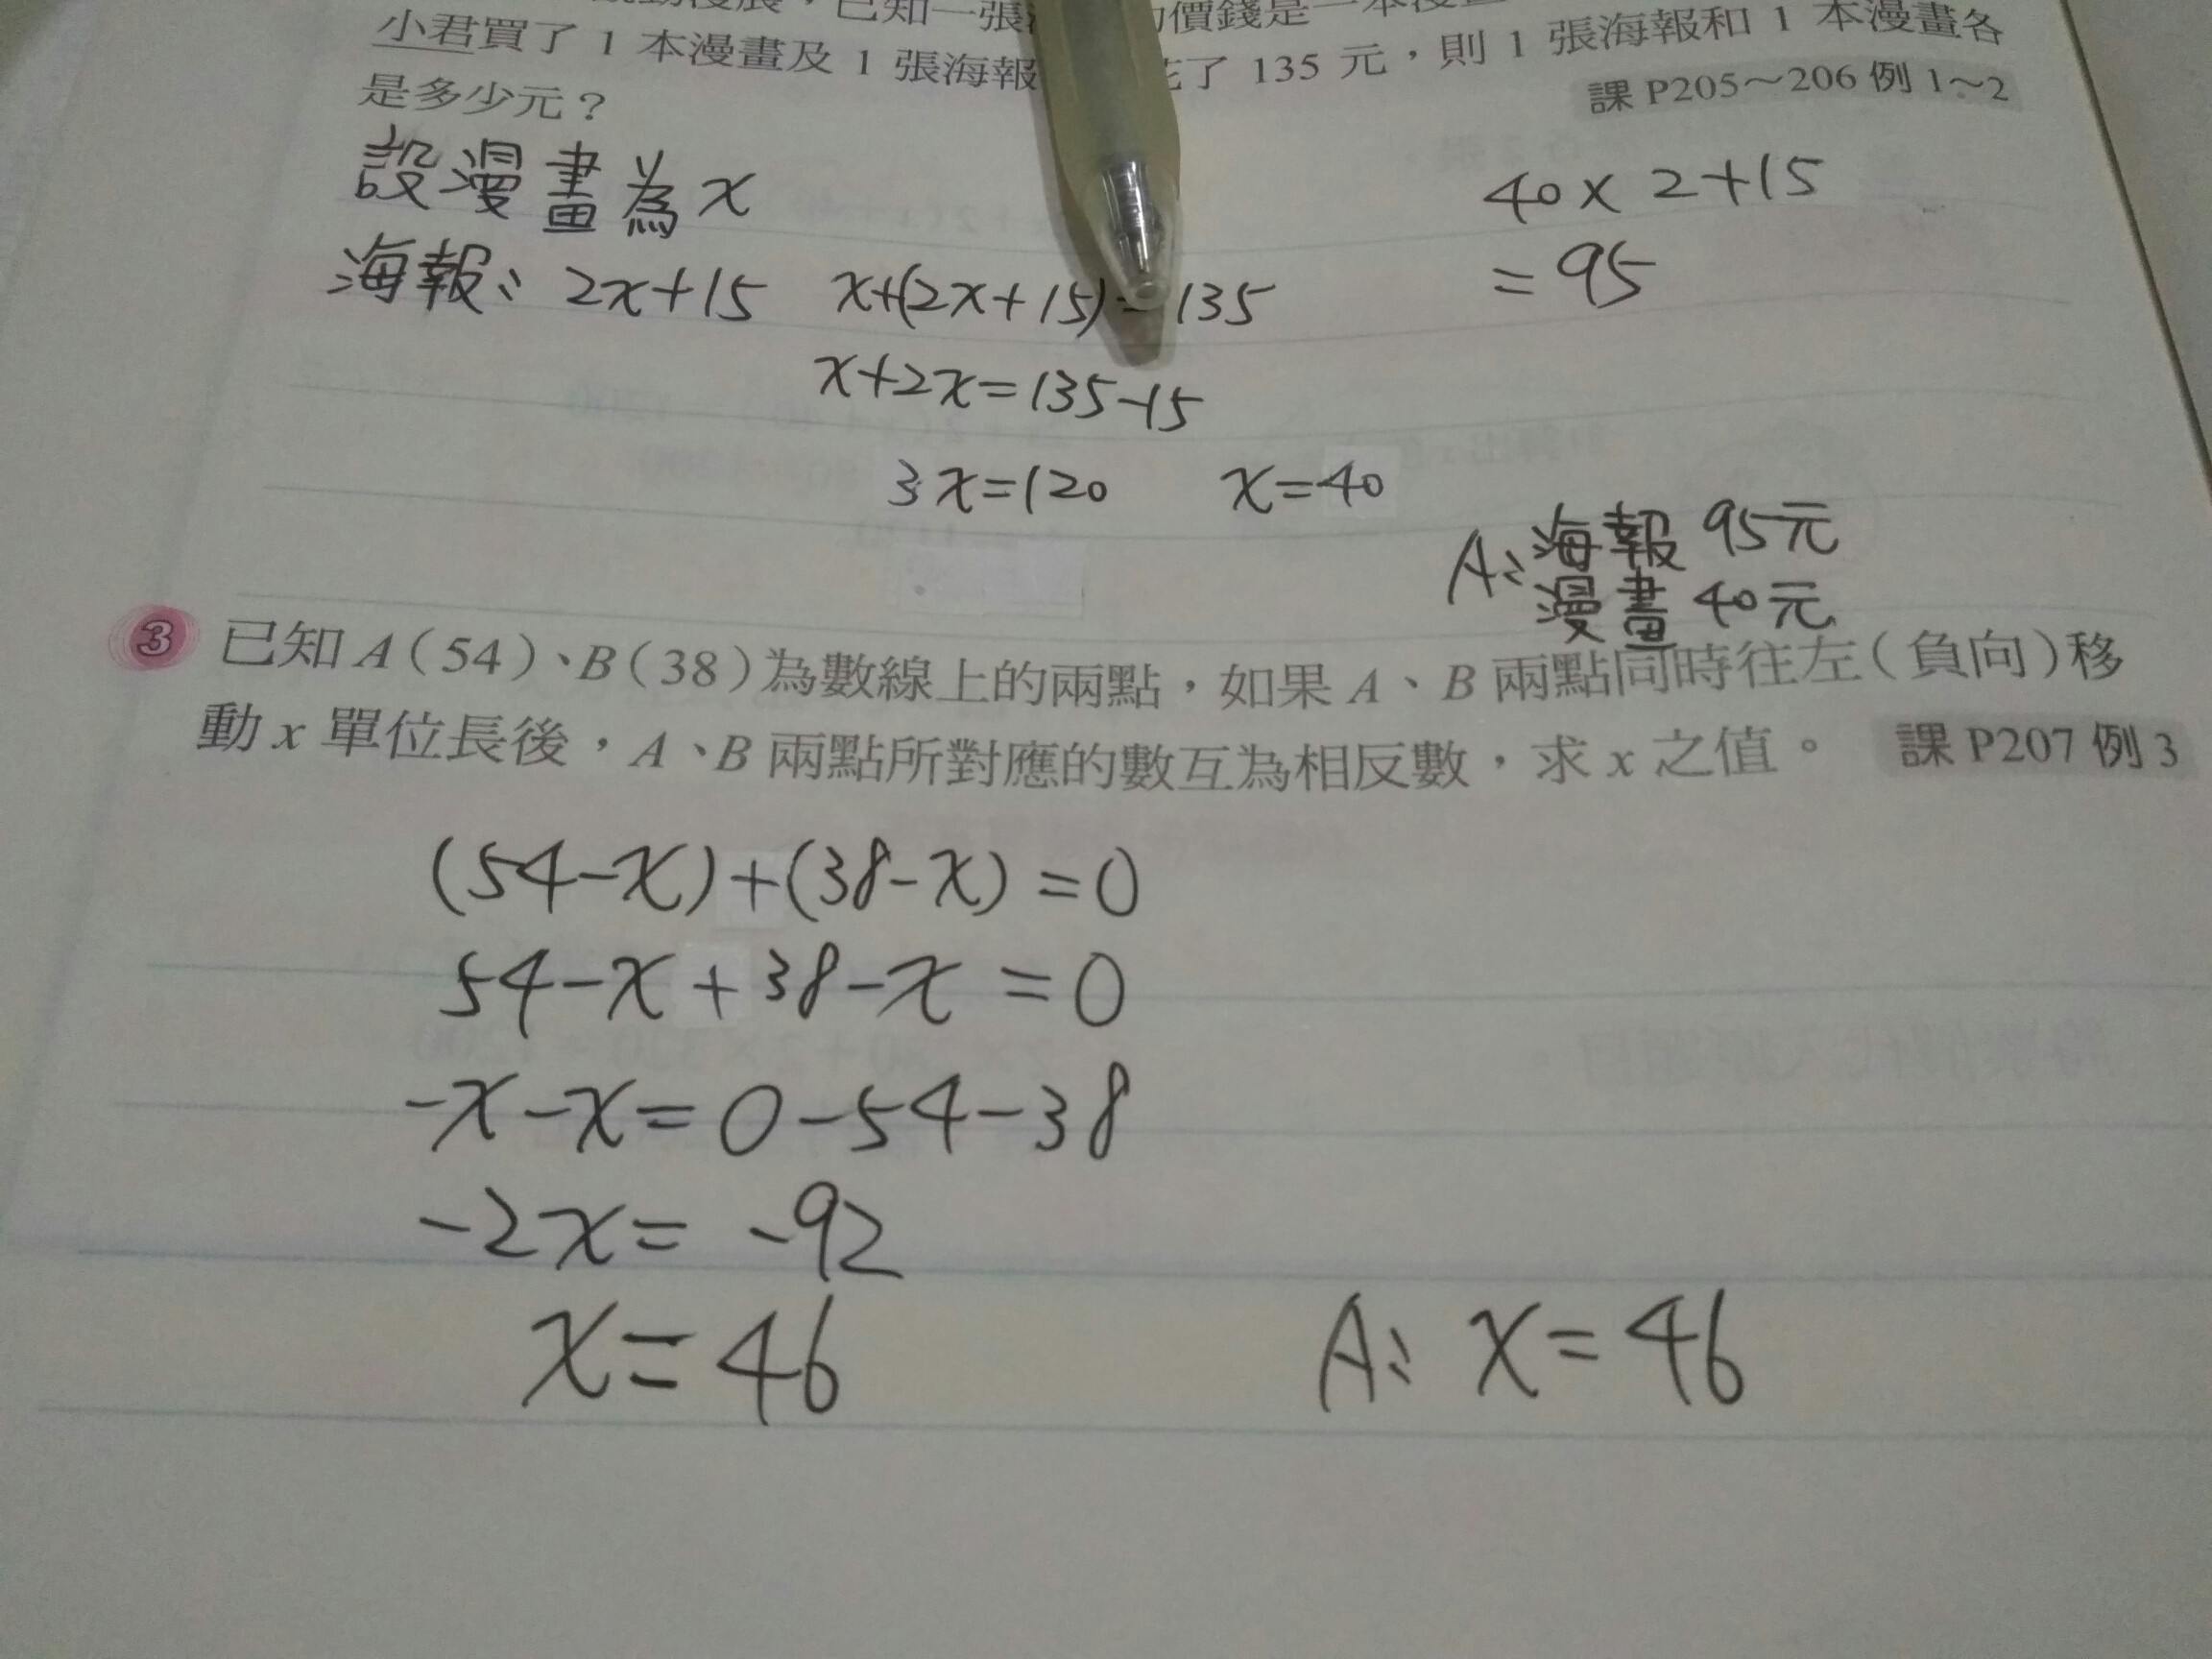 已知一張 價錢是一本漫畫
小君買了 1 本漫畫及 1 張海報 花了 135 元，則 1 張海報和 1 本漫畫各
是多少元？
課 P205～206 例 1～2
設漫畫為x
海報： 2x+15 x+(2x+15)=135
x+2x=135-15
3x=120 x=40
40×2+15
=95
A：海報 95元
漫畫 40元
3 已知 A（54）、B（38）為數線上的兩點，如果 A、B 兩點同時往左（負向）移
動 x 單位長後，A、B 兩點所對應的數互為相反數，求 x 之值。 課 P207 例 3
(54-x)+(38-x)=0
54-x+38-x=0
-x-x=0-54-38
-2x=-92
x=46
A：x=46